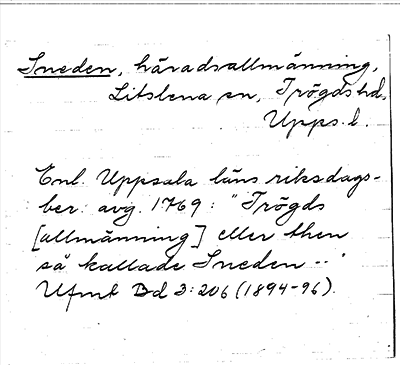 Sneden, häradsallmänning,
Litslena sn, Trögds hd,
Upps. l.
Enl. Uppsala läns riksdags-
ber. avg. 1769: "Trögds
[allmänning] eller then
så kallade Sneden --"
Ufmt Bd 3:206 (1894-96).